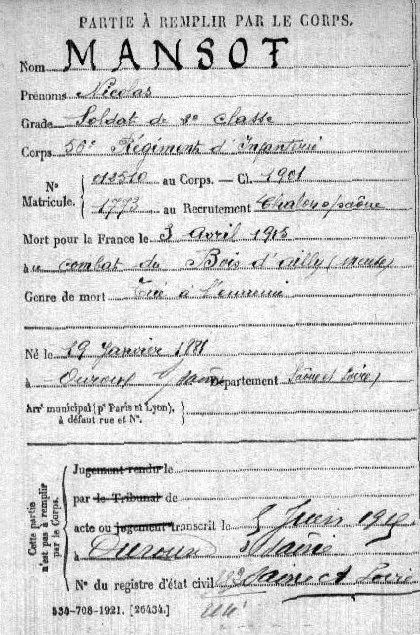 PARTIE À REMPLIR PAR LE CORPS.
Nom MANSOT
Prénoms Nicolas
Grade Soldat de 2e classe
Corps 56e Régiment d'Infanterie
N° 012510 au Corps. — Cl. 1901
Matricule. 1773 au Recrutement Chalon s/ saône
Mort pour la France le 3 Avril 1915
à au combat du Bois d'ailly (meuse)
Genre de mort Tué à l'ennemi
Né le 19 Janvier 1881
à Ouroux s/ Saône Département Saône et Loire)
Arrt municipal (pr Paris et Lyon),
à défaut rue et N°.
Cette partie
n'est pas à remplir
par le Corps.
Jugement rendu le
par le Tribunal de
acte ou jugement transcrit le 5 Juin 1915
à Ouroux s Saône
N° du registre d'état civil Saône et Loire
534-708-1921. [26434.]